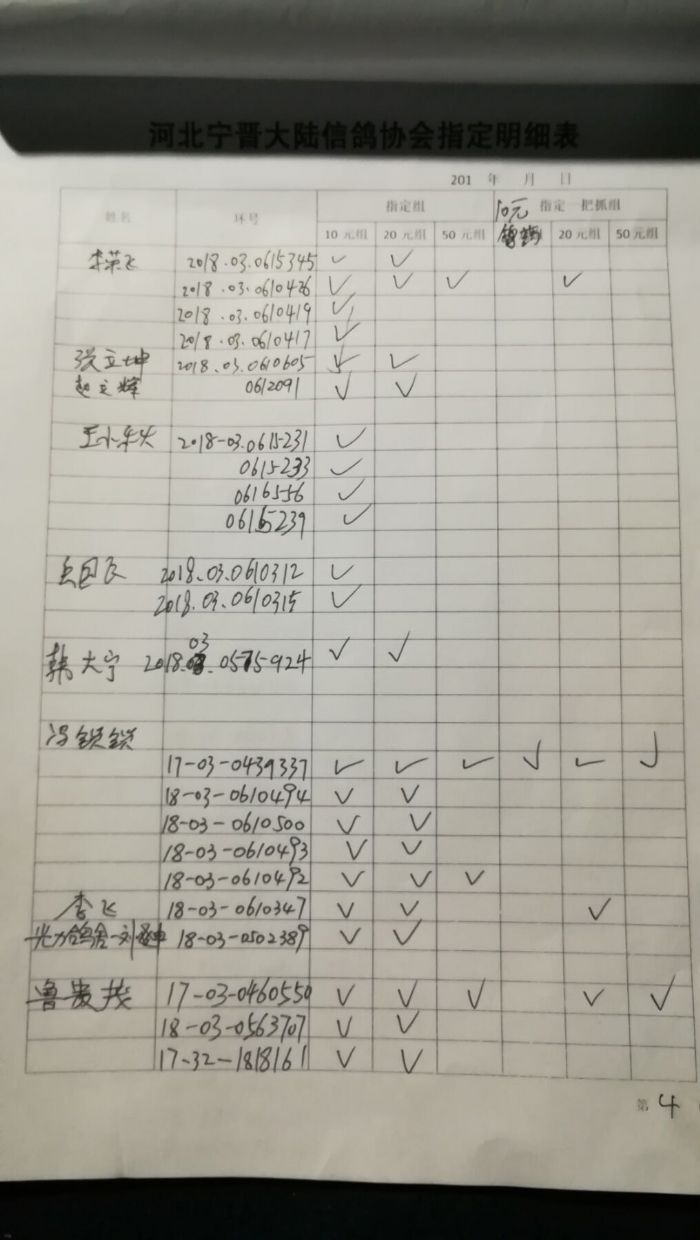 河北宁晋大陆信鸽协会指定明细表
201 年 月 日
姓名 环号 指定组 10元 指定一把抓组
10 元组 20 元组 50 元组 20 元组 50 元组
李荣飞 2018.03.0615345 ✓ ✓
2018.03.0610426 ✓ ✓ ✓ ✓
2018.03.0610419 ✓
2018.03.0610417 ✓
张立坤 2018.03.0610605 ✓ ✓
赵立辉 0612091 ✓ ✓
王小 2018-03.0615231 ✓
0615233 ✓
0616556 ✓
0615239 ✓
2018.03.0610312 ✓
2018.03.0610315 ✓
韩大宁 2018.03.0575924 ✓ ✓
冯锁锁
17-03-0439337 ✓ ✓ ✓ ✓ ✓ ✓
18-03-0610494 ✓ ✓
18-03-0610500 ✓ ✓
18-03-0610493 ✓ ✓
18-03-0610492 ✓ ✓ ✓
李飞 18-03-0610347 ✓ ✓ ✓
鸽舍-刘 18-03-0502389 ✓ ✓
鲁贵茂 17-03-0460550 ✓ ✓ ✓ ✓ ✓
18-03-0563707 ✓ ✓
17-32-1818161 ✓ ✓
第 4